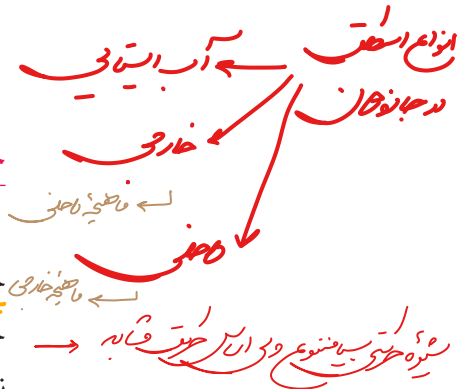 انواع اسکلت در جانوران
← آب ایستایی
← خارجی
← ماهیچه داخلی
← داخلی
← ماهیچه خارجی
شیوه حرکتی بسیار متنوع ولی اساس حرکت مشابه ←